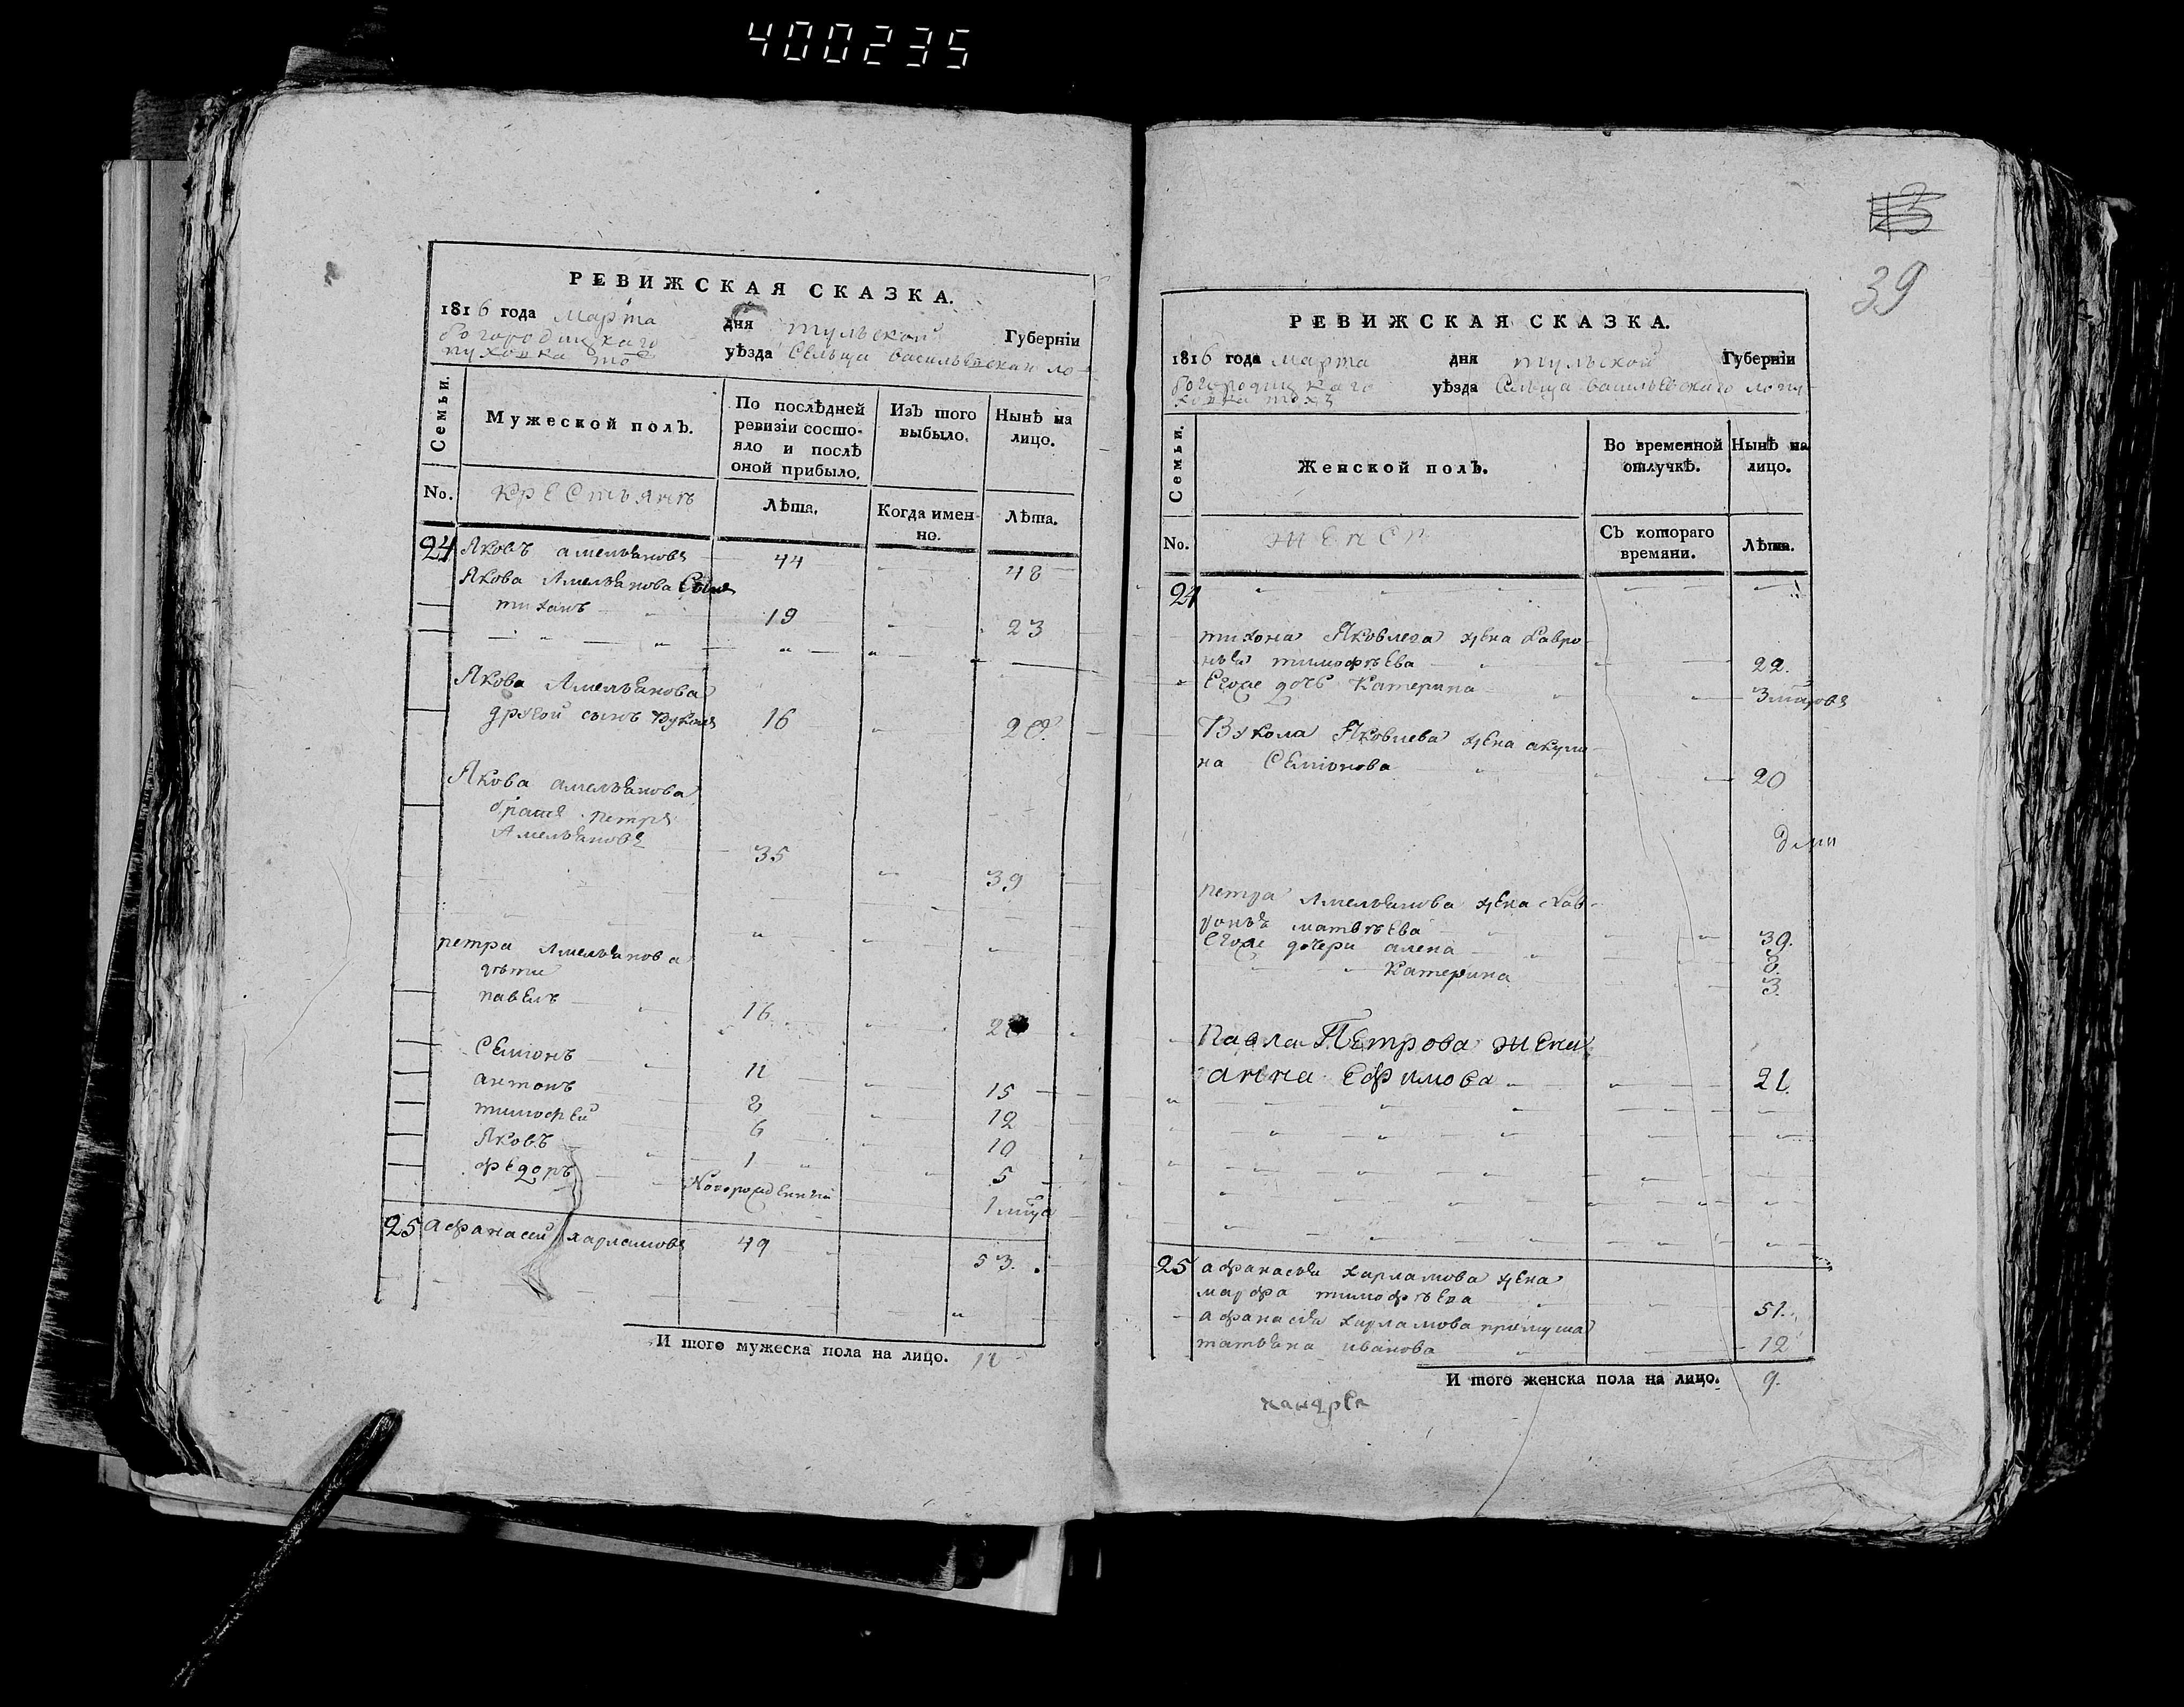 400235
РЕВИЖСКАЯ СКАЗКА.
1816 года марта дня тульской Губернїи
богородицкаго уѣзда Сельца васильевскаи ло
пуховка то
Семьи.
Мужеской полЪ.
По послѣдней ревизїи состояло и послѣ оной прибыло.
ИзЪ того выбыло.
Нынѣ на лицо.
No.
крестьянъ
Лѣта.
Когда именно.
Лѣта.
24 Яковъ амельяновъ 44 48
Якова Амельянова Сынъ
тихонъ 19 23
Якова Амельянова
другой сынъ Вуколъ 16 20.
Якова амельянова
братъ петръ
Амельяновъ 35 39
петра Амельянова
дѣти
павелъ 16
Семіонъ 11 15
антонъ 8 12
тимофей 6 10
Яковъ 1 5
федоръ Новорожденный 1 мцъ
25 афанасей харламовъ 49 53.
И того мужеска пола на лицо.
39
РЕВИЖСКАЯ СКАЗКА.
1816 года марта дня тульской Губернїи
богородицкаго уѣзда Сельца васильевскаго лопу
ховка
Семьи.
Женской полЪ.
Во временной отлучкѣ.
Нынѣ на лицо.
No.
женск
СЪ котораго времяни.
Лѣта.
24
тихона Яковлева жена хавро
нья тимофѣева 22.
Егоже дочь Катерина
Вукола Яковлева жена акули
на Семіонова 20
петра Амельянова жена хав
ронья матвѣева 39.
Егоже дочери алена 8.
Катерина 3.
Павла Петрова жена
анна Ефимова 21.
25 афанасья харламова жена
марфа тимофѣева 51.
афанасья харламова
татьяна иванова 12
И того женска пола на лицо. 9.